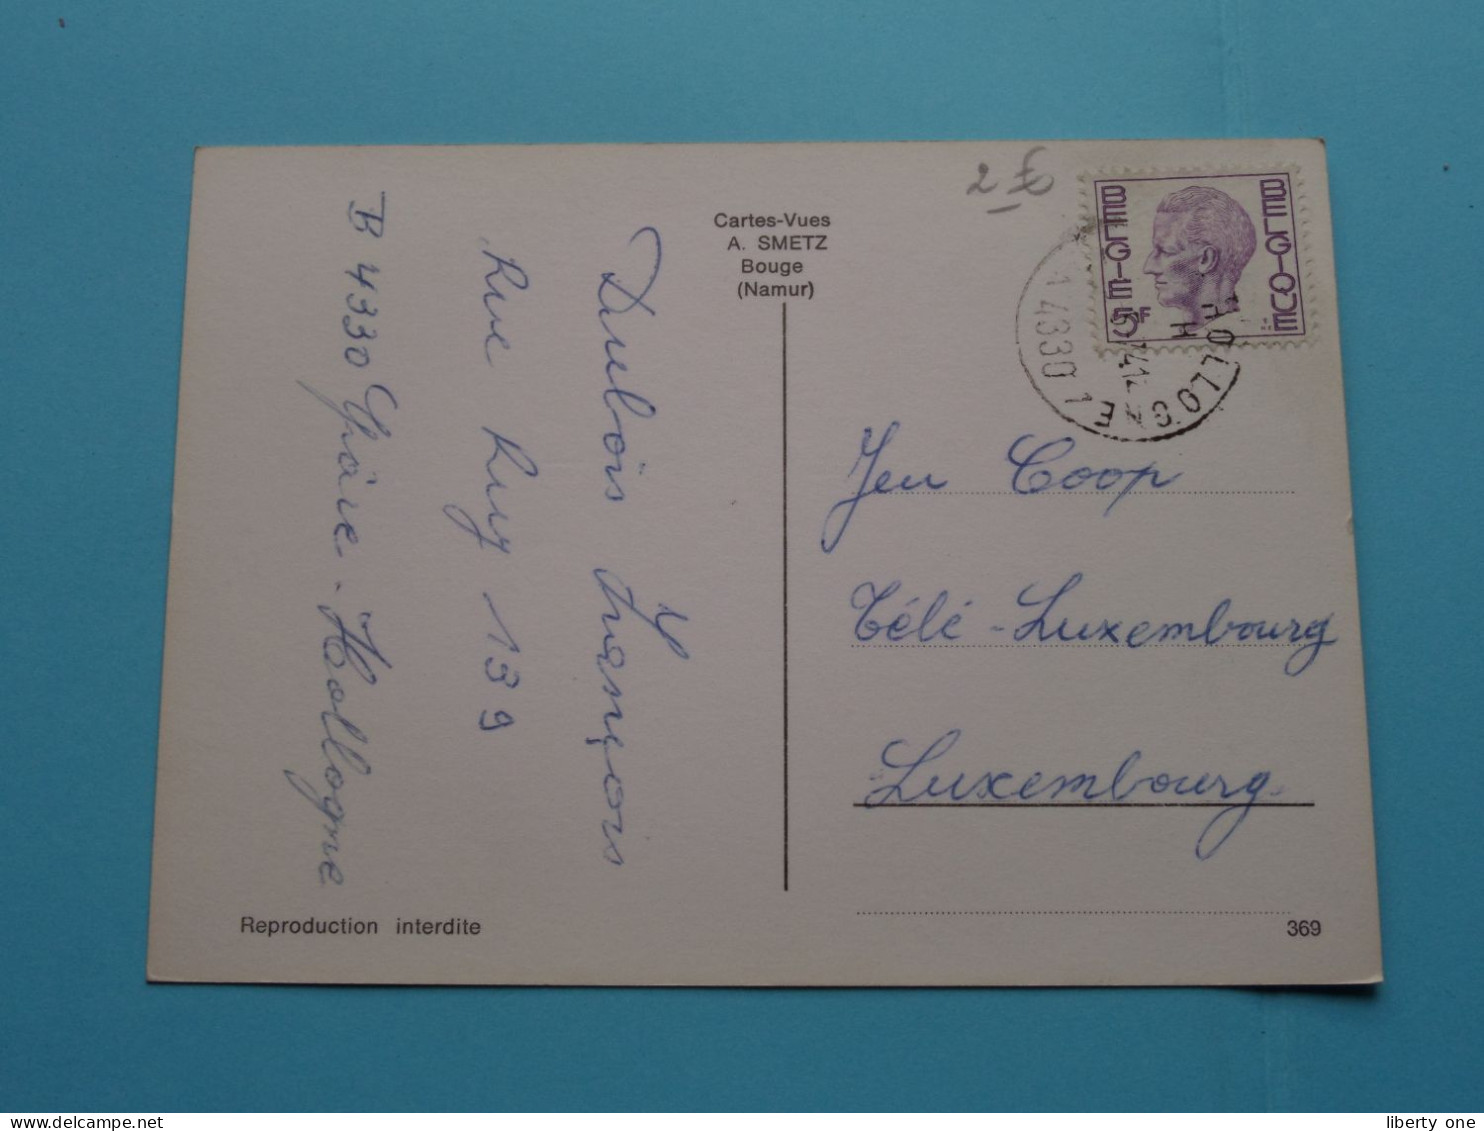 B 4330 Grâce-Hollogne
Rue Ruy 139
Dubois François
Cartes-Vues
A. SMETZ
Bouge
(Namur)
2 €
BELGIE
5F
BELGIQUE
HOLLOGNE 1
H
1 4330
Jeu Coop
Télé-Luxembourg
Luxembourg
Reproduction interdite
369
liberty one